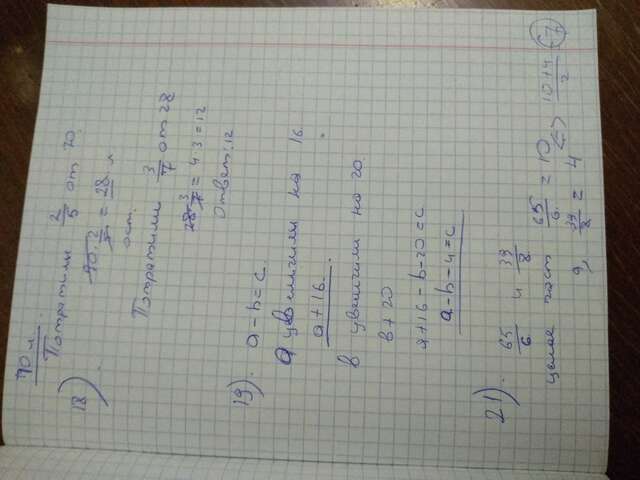 70 л.
18). Потратили 2/5 от 70.
70·2/5 = 28 л
ост.
Потратили 3/7 от 28
28·3/7 = 4·3=12
Ответ: 12
19). a-b=c.
а увеличили на 16.
a+16.
в увеличили на 20.
в+20
a+16-b-20=c
a-b-4=c
21). 65/6 и 39/8
целая част 65/6 = 10
39/8 = 4
10+4/2